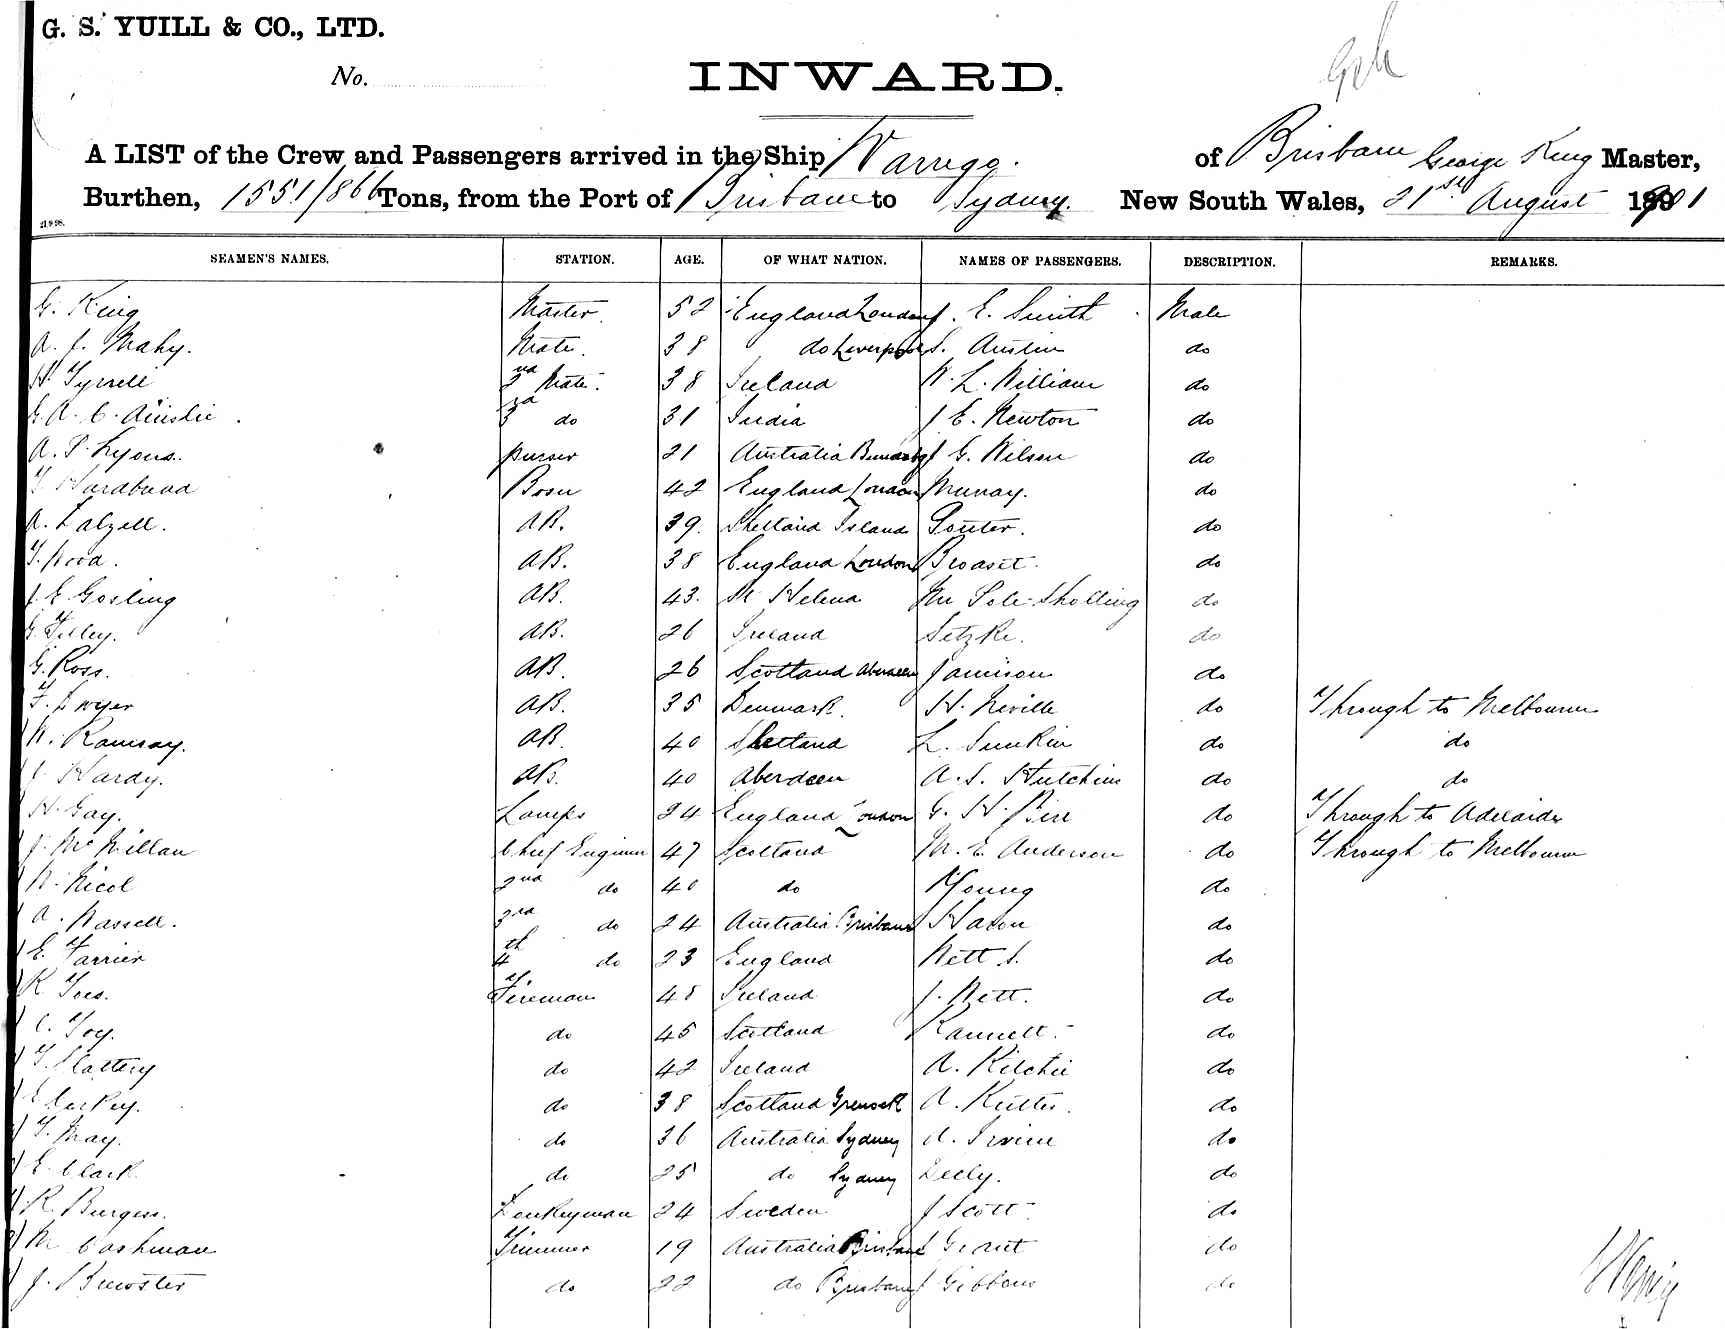 G. S. YUILL & CO., LTD.
No.
INWARD.
A LIST of the Crew and Passengers arrived in the Ship Warrego. of Brisbane George King Master,
Burthen, 1551/866 Tons, from the Port of Brisbane to Sydney. New South Wales, 21st August 1901
21.9.98.
SEAMEN'S NAMES. STATION. AGE. OF WHAT NATION. NAMES OF PASSENGERS. DESCRIPTION. REMARKS.
G. King Master. 52 England London J. E. Smith Male
A. J. Mahy. Mate. 38 do Liverpool S. Austin do
H. Tyrrell 2nd Mate. 38 Ireland W. L. William do
G. A. C. Ainslie 3rd do 31 India J E. Newton do
A. P. Lyons. purser 21 Australia J G. Wilson do
Bosn 42 England London Murray. do
A. Dalzell. AB. 39. Shetland Island Souter. do
T. Wood. AB. 38 England London Broasit. do
J. E. Gosling AB. 43. St Helena Mr Pole Sholling do
G. Tilley. AB. 26 Ireland Setzke. do
G. Ross. AB. 26 Scotland Aberdeen Jamison do
F. Dwyer AB. 35 Denmark. H. Neville do Through to Melbourne
W. Ramsay. AB. 40 Shetland L. Sunkin do do
J. Hardy. AB. 40 Aberdeen A. S. Hutchins do do
H. Gay. Lamps 24 England London G. H. do Through to Adelaide
J. McMillan Chief Engineer 47 Scotland M. E. Anderson do Through to Melbourne
W. Nicol 2nd do 40 do Young do
A. Wassell. 3rd do 24 Australia Brisbane do
E. Farrier 4th do 23 England Nett S. do
K Ives. Fireman 45 Ireland J. Nett. do
C. Foy. do 45 Scotland Rannett. do
T. Slattery do 42 Ireland A. Ritchie do
do 38 Scotland Grenock A. do
T. May. do 36 Australia Sydney A. Irvine do
E. Clark do 25 do Sydney Leely. do
R. Burgess. Donkeyman 24 Sweden J Scott. do
M Cashman Trimmer 19 Australia Brisbane J Grant do
J. Brewster do 22 do Brisbane J Gibbons do